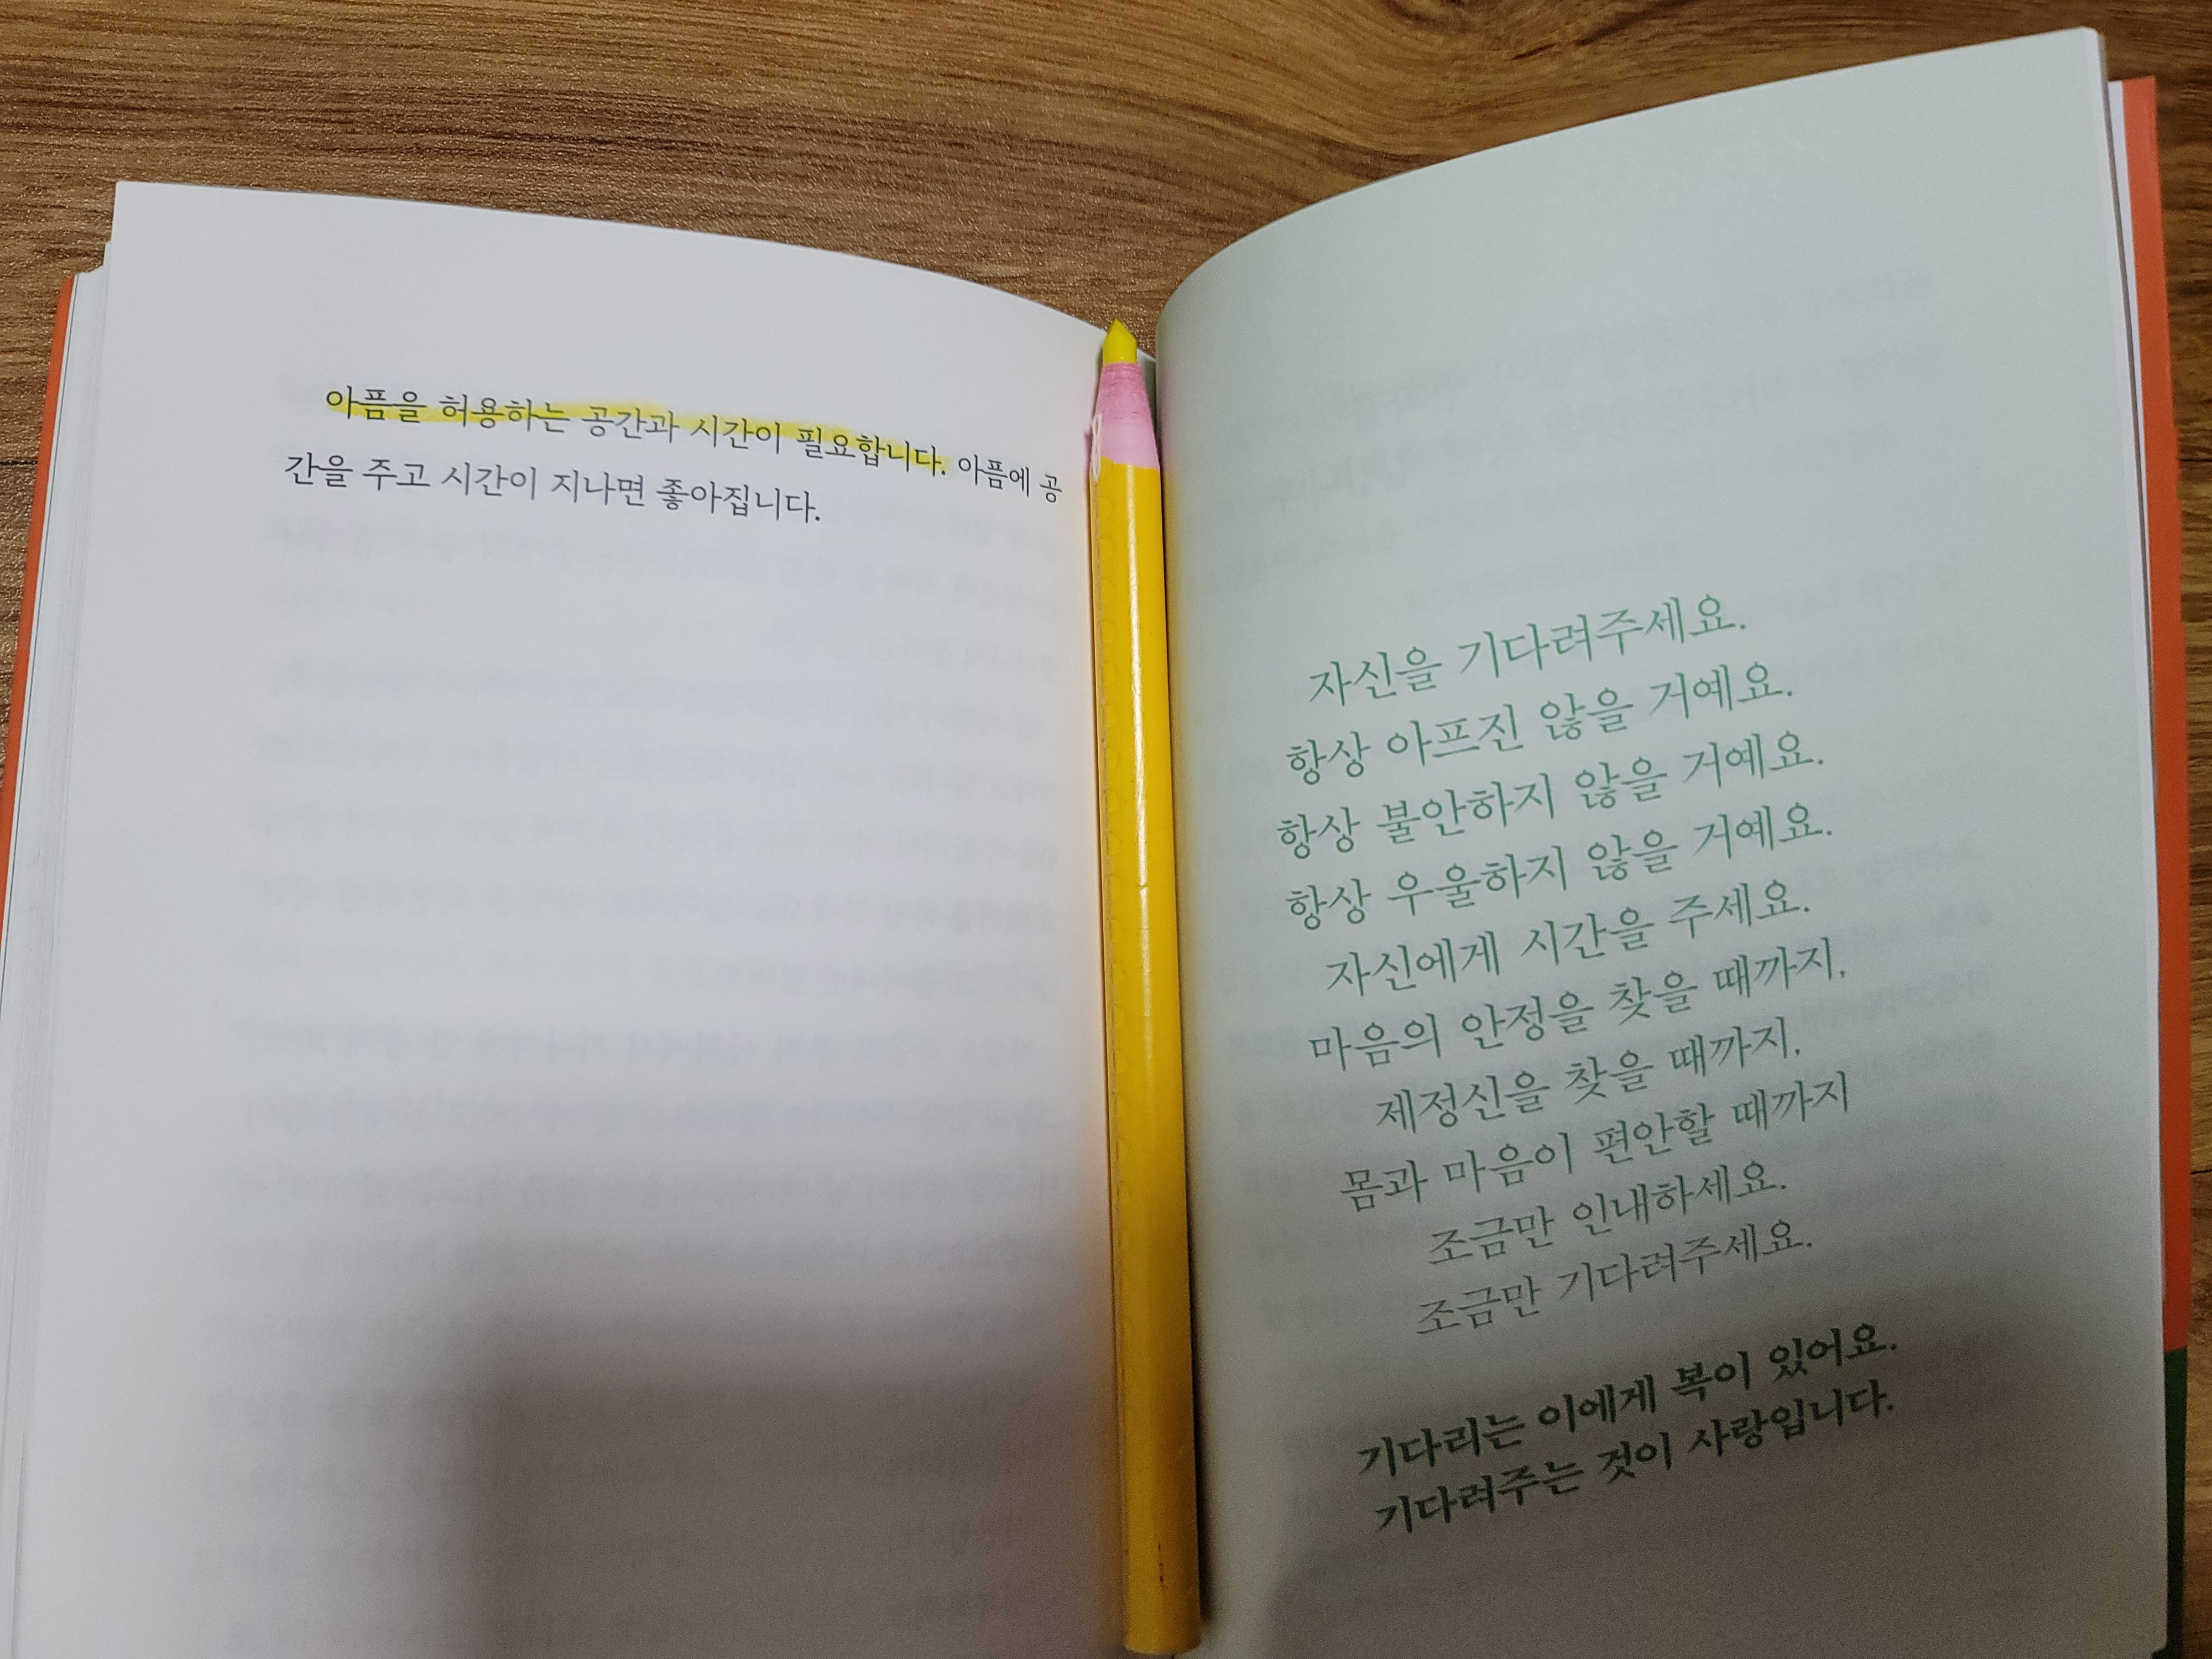 아픔을 허용하는 공간과 시간이 필요합니다. 아픔에 공
간을 주고 시간이 지나면 좋아집니다.
자신을 기다려주세요.
항상 아프진 않을 거예요.
항상 불안하지 않을 거예요.
항상 우울하지 않을 거예요.
자신에게 시간을 주세요.
마음의 안정을 찾을 때까지,
제정신을 찾을 때까지,
몸과 마음이 편안할 때까지
조금만 인내하세요.
조금만 기다려주세요.
기다리는 이에게 복이 있어요.
기다려주는 것이 사랑입니다.